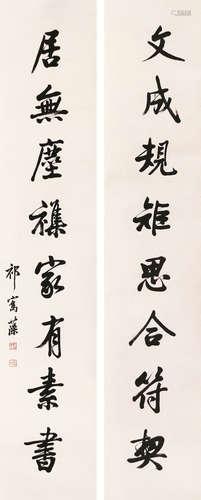 文成規矩思合符契
居無塵襍家有素書
祁寯藻